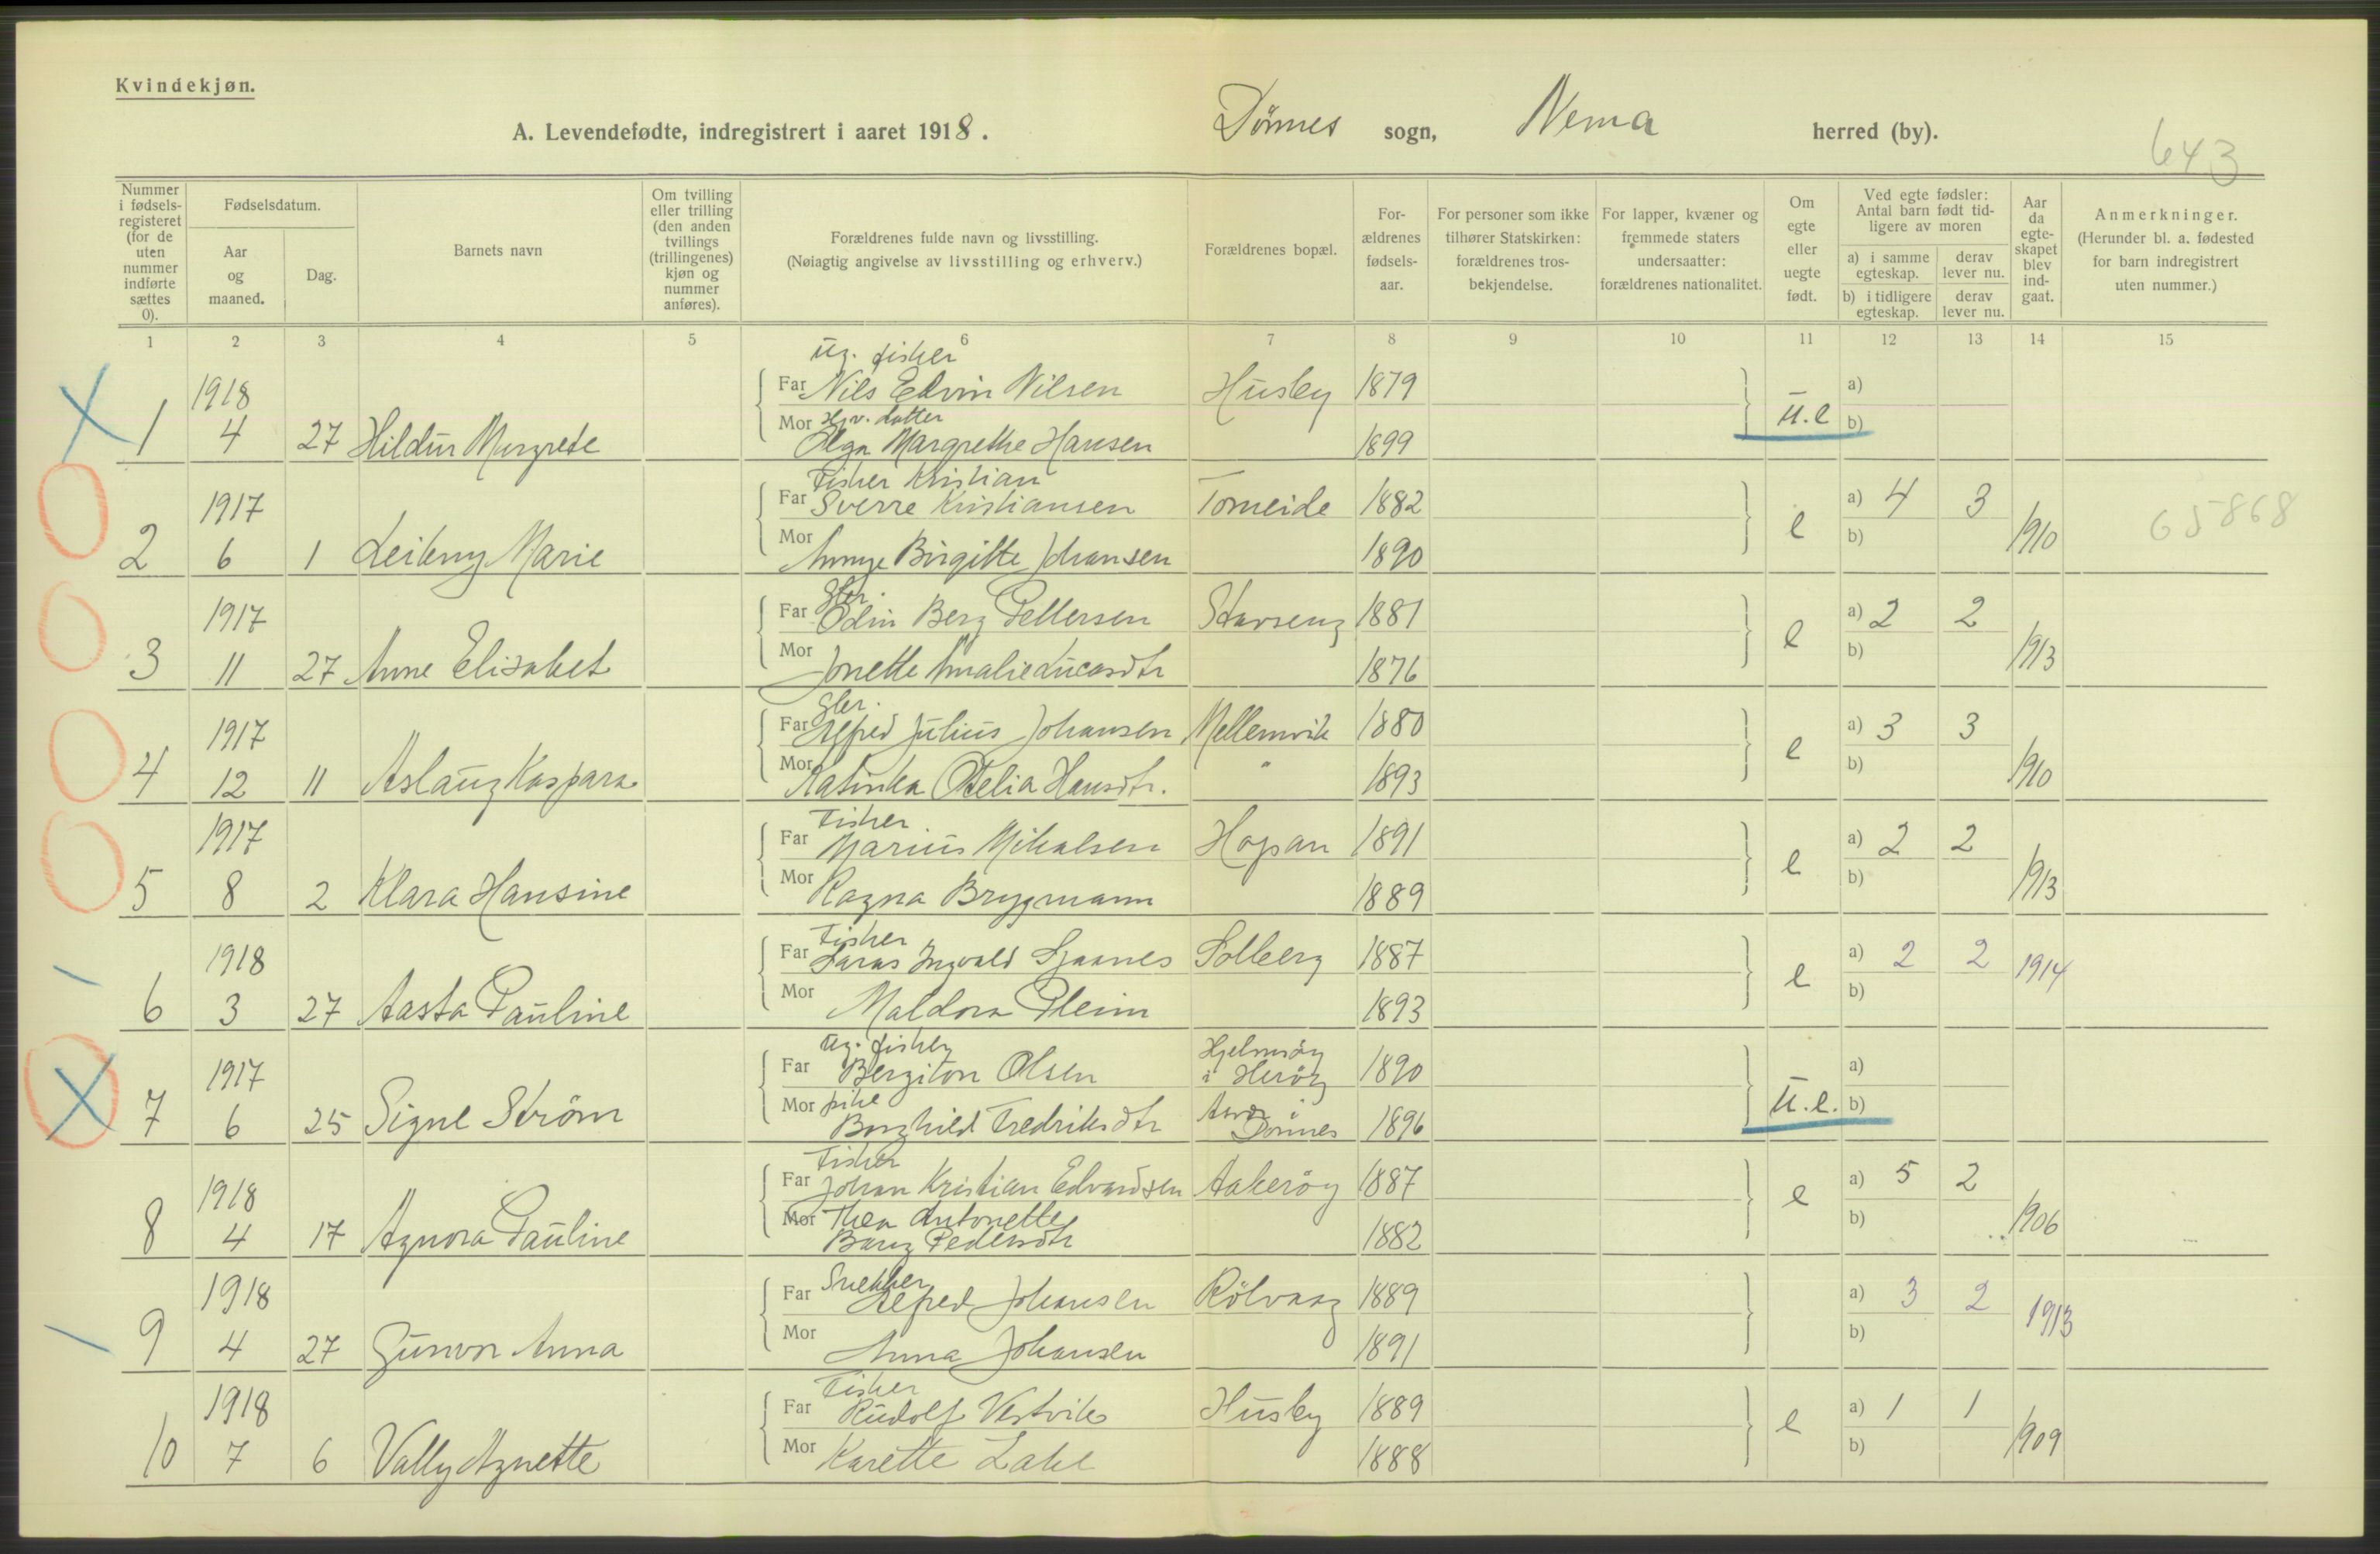 Kvindekjøn.
A. Levendefødte, indregistrert i aaret 1918. Dönnes sogn, Nesna herred (by).
643
Nummer i fødsels-registeret (for de uten nummer indførte sættes 0).
Fødselsdatum.
Aar og maaned.
Dag.
Barnets navn
Om tvilling eller trilling (den anden tvillings (trillingenes) kjøn og nummer anføres).
Forældrenes fulde navn og livsstilling.
(Nøiagtig angivelse av livsstilling og erhverv.)
Forældrenes bopæl.
For-ældrenes fødsels-aar.
For personer som ikke tilhører Statskirken: forældrenes tros-bekjendelse.
For lapper, kvæner og fremmede staters undersaatter: forældrenes nationalitet.
Om egte eller uegte født.
Ved egte fødsler: Antal barn født tid-ligere av moren
a) i samme egteskap.
derav lever nu.
b) i tidligere egteskap.
derav lever nu.
Aar da egte-skapet blev ind-gaat.
Anmerkninger.
(Herunder bl. a. fødested for barn indregistrert uten nummer.)
1 2 3 4 5 6 7 8 9 10 11 12 13 14 15
Ug. fisker
1918 Far Nils Edvin Nilsen Husby 1879 a)
Mor datter u.e b)
1 4 27 Hildur Margrete Olga Margrethe Hansen 1899
Fisker Kristian
1917 Far Sverre Kristiansen Tomeide 1882 a) 4 3
65868
Mor e b)
2 6 1 Leikny Marie Birgitte Johansen 1890 1910
1917 Far Odin Berg Pettersen 1881 a) 2 2
Mor e b)
3 11 27 Anne Elisabet Jonette Amalie Lucasdtr 1876 1913
1917 Far Alfred Julius Johansen Mellemvik 1880 a) 3 3
Mor " e b)
4 12 11 Aslaug Kaspara Katinka Otelia Hansdtr. 1893 1910
Fisker
1917 Far Marius Mikalsen Hopan 1891 a) 2 2
Mor e b)
5 8 2 Klara Hansine Ragna Brygmann 1889 1913
Fisker
1918 Far Ingvald Solberg 1887 a) 2 2 1914
Mor e b)
6 3 27 Aasta Pauline Maldora 1893
Ug. fisker Hjelmsöy
1917 Far Bergiton Olsen i Heröy 1890 a)
Mor pike u.e. b)
7 6 25 Signe Ström Borghild Fredriksdtr Dönnes 1896
Fisker
1918 Far Johan Kristian Edvardsen Aakeröy 1887 a) 5 2
Mor Thea Antonette e b)
8 4 17 Agnora Pauline Berg Pedersdtr 1882 1906
Snekker
1918 Far Alfred Johansen Rölvaag 1889 a) 3 2 1913
Mor b)
9 4 27 Gunvor Anna Anna Johansen 1891
Fisker
1918 Far Rudolf Vestvik Husby 1889 a) 1 1
Mor e b)
10 7 6 Vally Agnette Karette 1888 1909